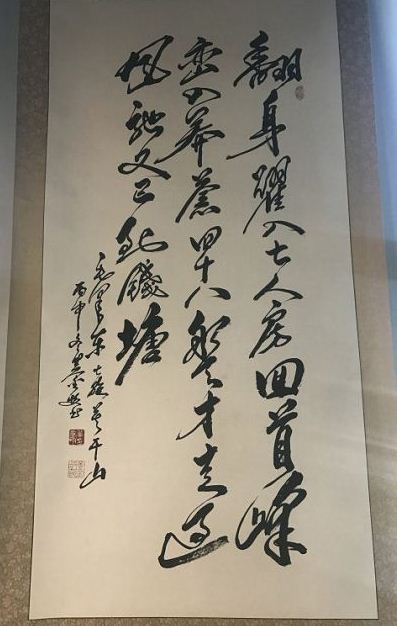 翻身躍入七人房回首峰
峦入莽蒼四十八盤才走過
風馳又已到錢塘
毛澤東七絕莫干山
丙申冬